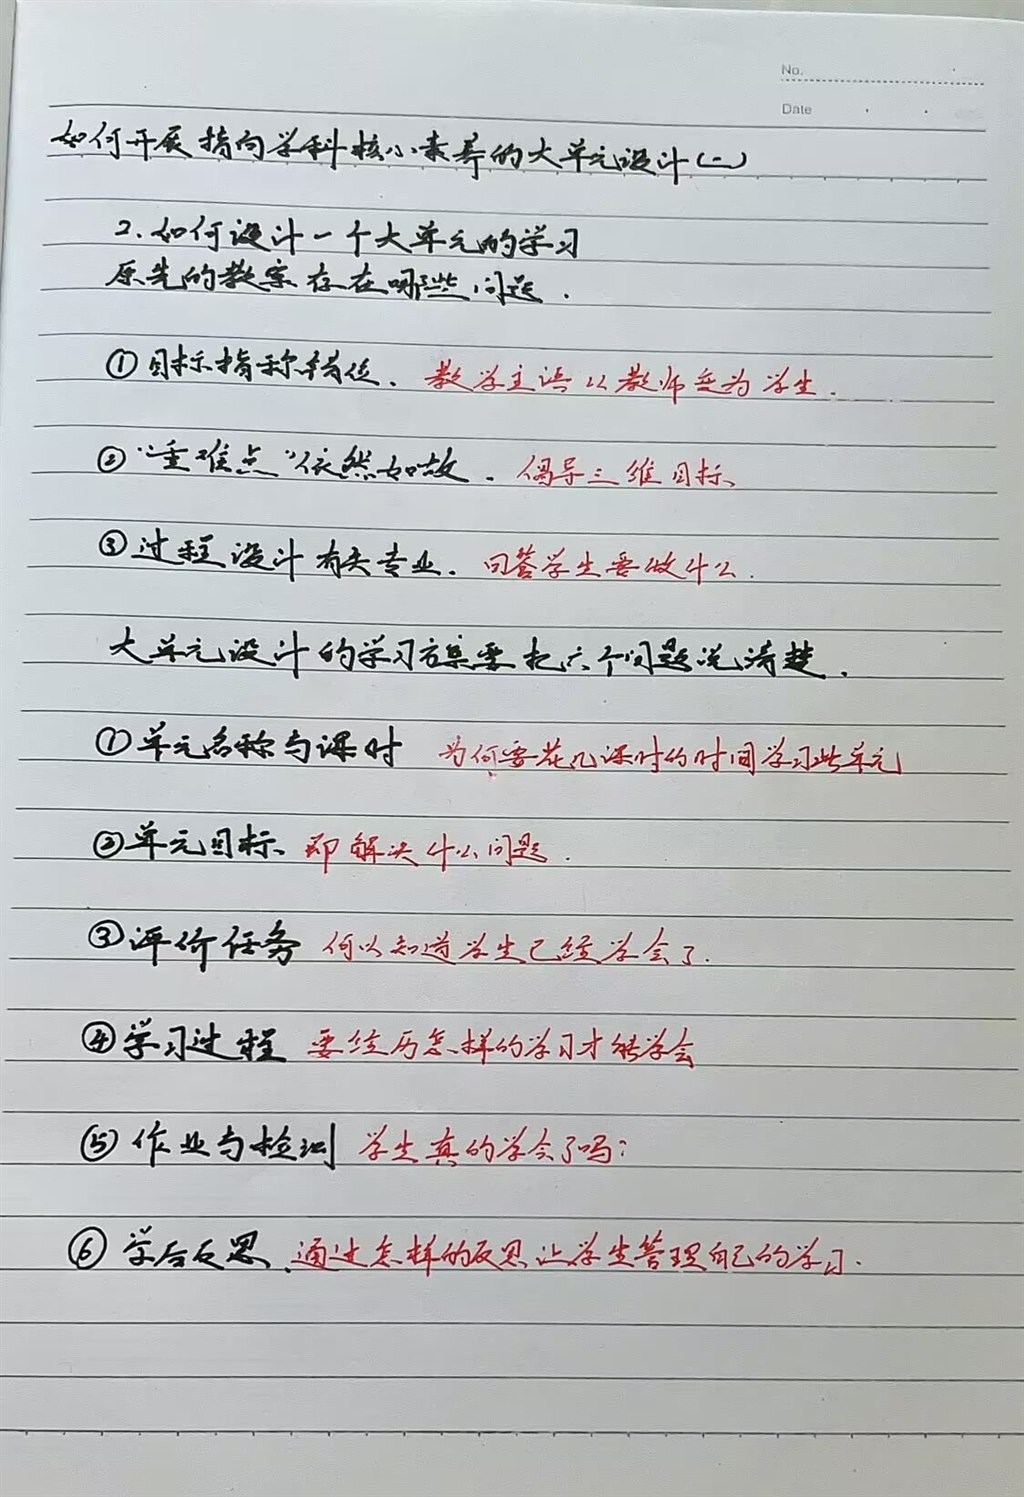 No.
Date
如何开展指向学科核心素养的大单元设计(一)
2.如何设计一个大单元的学习
原先的教案存在哪些问题.
①目标指称错位. 教学主语从教师变为学生.
②“重难点”依然如故. 倡导三维目标、
③过程设计有失专业. 回答学生要做什么.
大单元设计的学习方案要把六个问题说清楚.
①单元名称与课时 为何要花几课时的时间学习此单元
②单元目标、即解决什么问题.
③评价任务 何以知道学生已经学会了.
④学习过程 要经历怎样的学习才能学会
⑤作业与检测 学生真的学会了吗?
⑥学后反思、通过怎样的反思让学生管理自己的学习.